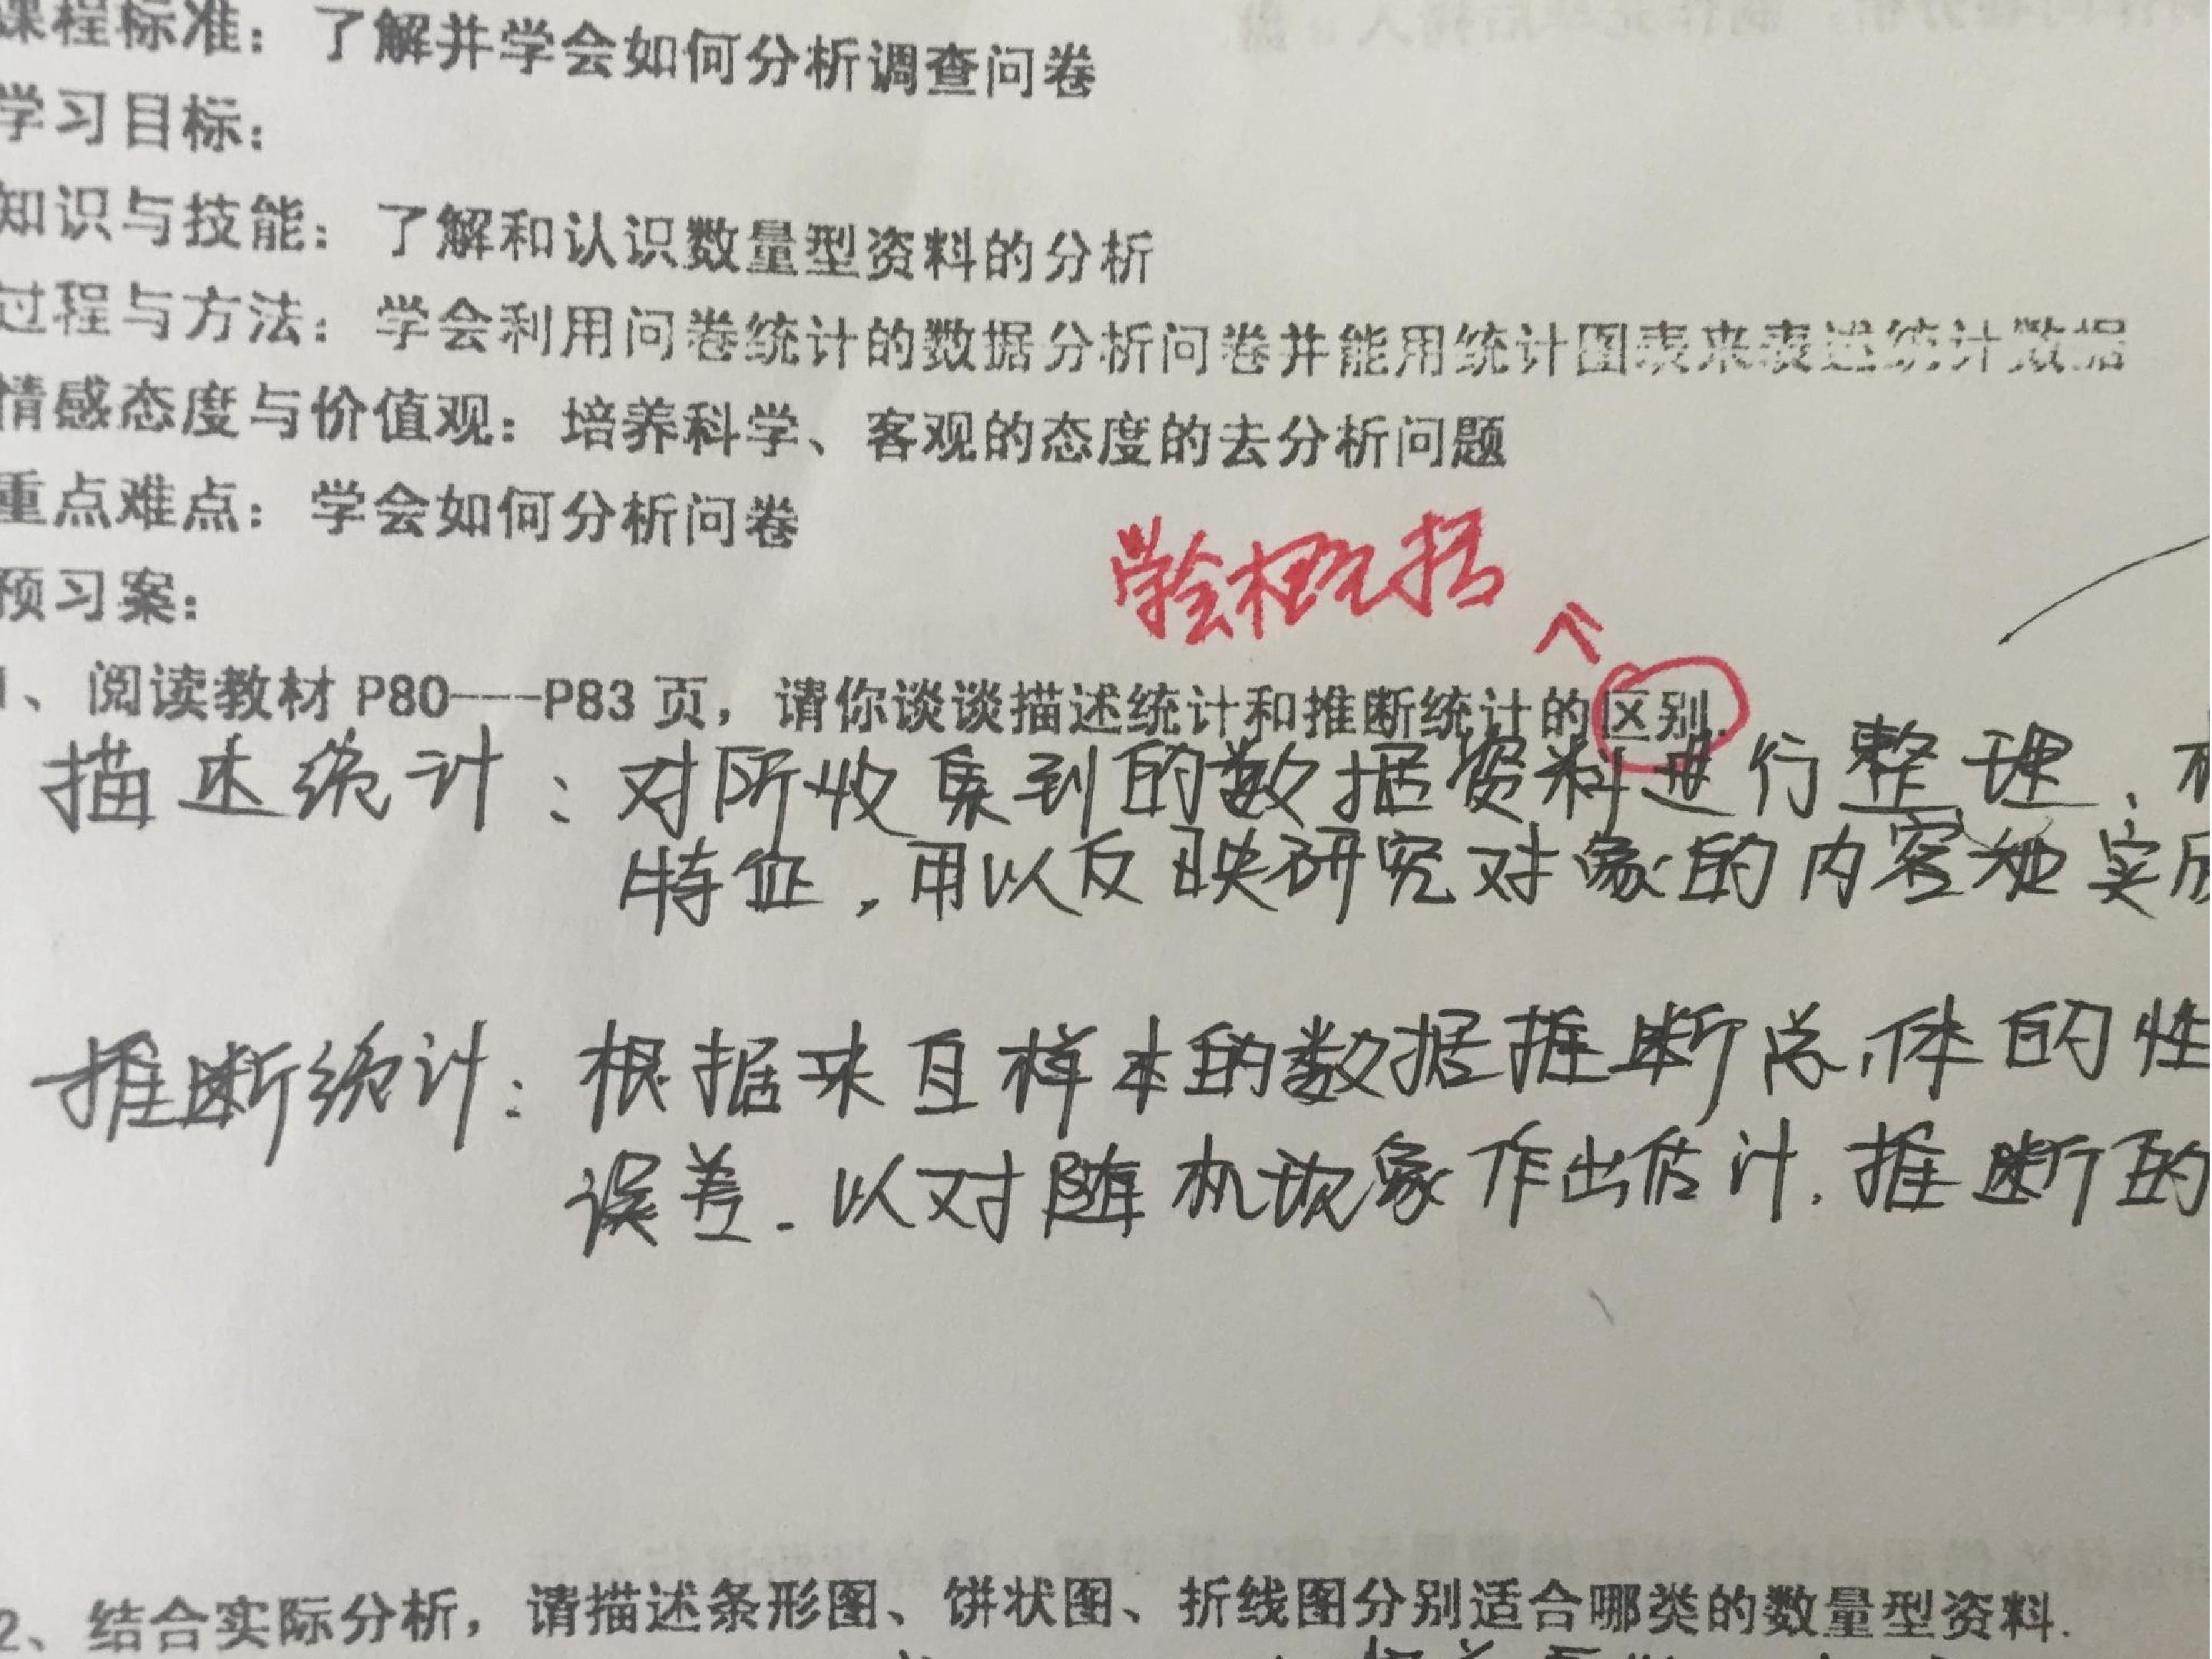 课程标准：了解并学会如何分析调查问卷
学习目标：
知识与技能：了解和认识数量型资料的分析
过程与方法：学会利用问卷统计的数据分析问卷并能用统计图表来表述统计数据
情感态度与价值观：培养科学、客观的态度的去分析问题
重点难点：学会如何分析问卷
预习案：
学会概括
1、阅读教材 P80---P83 页，请你谈谈描述统计和推断统计的区别.
描述统计：对所收集到的数据资料进行整理、
特征，用以反映研究对象的内容和实质
推断统计：根据来自样本的数据推断总体的性
误差.以对随机现象作出估计.推断的
2、结合实际分析，请描述条形图、饼状图、折线图分别适合哪类的数量型资料.